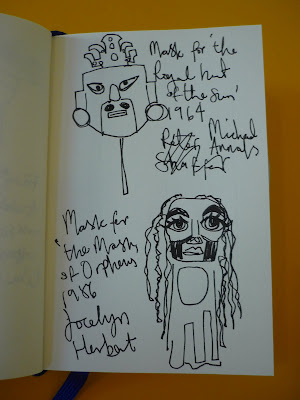 Mask for 'the
Royal Hunt
of the Sun'
1964
Michael
Annals
Mask for
'the Mask
of Orpheus
1986
Jocelyn
Herbert